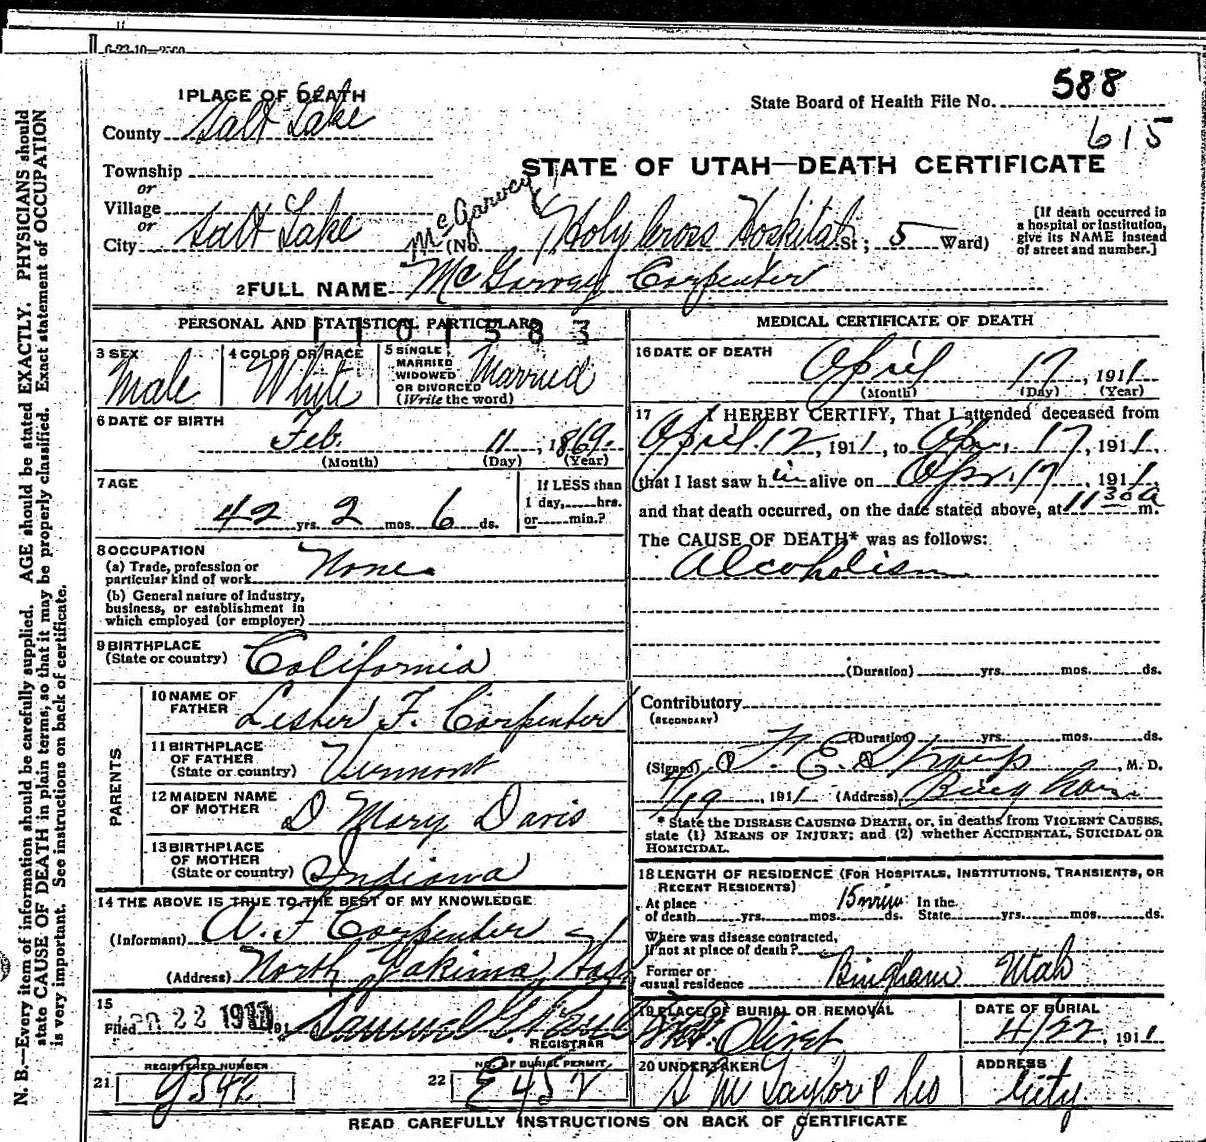 6-23-10—2500
1 PLACE OF DEATH
County Salt Lake
Township
or
Village
or
City Salt Lake
State Board of Health File No. 588
615
STATE OF UTAH—DEATH CERTIFICATE
McGarvey
(No. Holy Cross Hospital St.; 5 Ward)
[If death occurred in a hospital or institution, give its NAME instead of street and number.]
2 FULL NAME McGarvey Carpenter
PERSONAL AND STATISTICAL PARTICULARS
1101583
3 SEX Male
4 COLOR OR RACE White
5 SINGLE, MARRIED WIDOWED OR DIVORCED (Write the word) Married
6 DATE OF BIRTH
Feb. 11, 1869.
(Month) (Day) (Year)
7 AGE
42 yrs. 2 mos. 6 ds.
If LESS than
1 day,......hrs.
or......min.?
8 OCCUPATION
(a) Trade, profession or particular kind of work None
(b) General nature of industry, business, or establishment in which employed (or employer)
9 BIRTHPLACE
(State or country) California
PARENTS
10 NAME OF FATHER Lester F. Carpenter
11 BIRTHPLACE OF FATHER (State or country) Vermont
12 MAIDEN NAME OF MOTHER D Mary Davis
13 BIRTHPLACE OF MOTHER (State or country) Indiana
14 THE ABOVE IS TRUE TO THE BEST OF MY KNOWLEDGE
(Informant) A. F. Carpenter
(Address) North Yakima Wash
15
Filed APR 22 1911 191
Samuel G. Paul
REGISTRAR
REGISTERED NUMBER
21.
NO. OF BURIAL PERMIT
22 E452
MEDICAL CERTIFICATE OF DEATH
16 DATE OF DEATH
April 17, 1911
(Month) (Day) (Year)
17 I HEREBY CERTIFY, That I attended deceased from
April 12, 1911, to Apr. 17, 1911,
that I last saw him alive on Apr. 17, 1911,
and that death occurred, on the date stated above, at 11 30 a m.
The CAUSE OF DEATH* was as follows:
Alcoholism
(Duration) yrs. mos. ds.
Contributory
(SECONDARY)
(Duration) yrs. mos. ds.
(Signed) F. E. Straup, M. D.
4/19, 1911 (Address) Bingham
* State the DISEASE CAUSING DEATH, or, in deaths from VIOLENT CAUSES, state (1) MEANS OF INJURY; and (2) whether ACCIDENTAL, SUICIDAL OR HOMICIDAL.
18 LENGTH OF RESIDENCE (FOR HOSPITALS, INSTITUTIONS, TRANSIENTS, OR RECENT RESIDENTS)
At place of death yrs. mos. 15 min ds. In the State yrs. mos. ds.
Where was disease contracted, if not at place of death?
Former or usual residence Bingham Utah
19 PLACE OF BURIAL OR REMOVAL
Mt. Olivet
DATE OF BURIAL
4/22, 1911
20 UNDERTAKER
S M Taylor & Co
ADDRESS
City
READ CAREFULLY INSTRUCTIONS ON BACK OF CERTIFICATE
N. B.—Every item of information should be carefully supplied. AGE should be stated EXACTLY. PHYSICIANS should
state CAUSE OF DEATH in plain terms, so that it may be properly classified. Exact statement of OCCUPATION
is very important. See instructions on back of certificate.